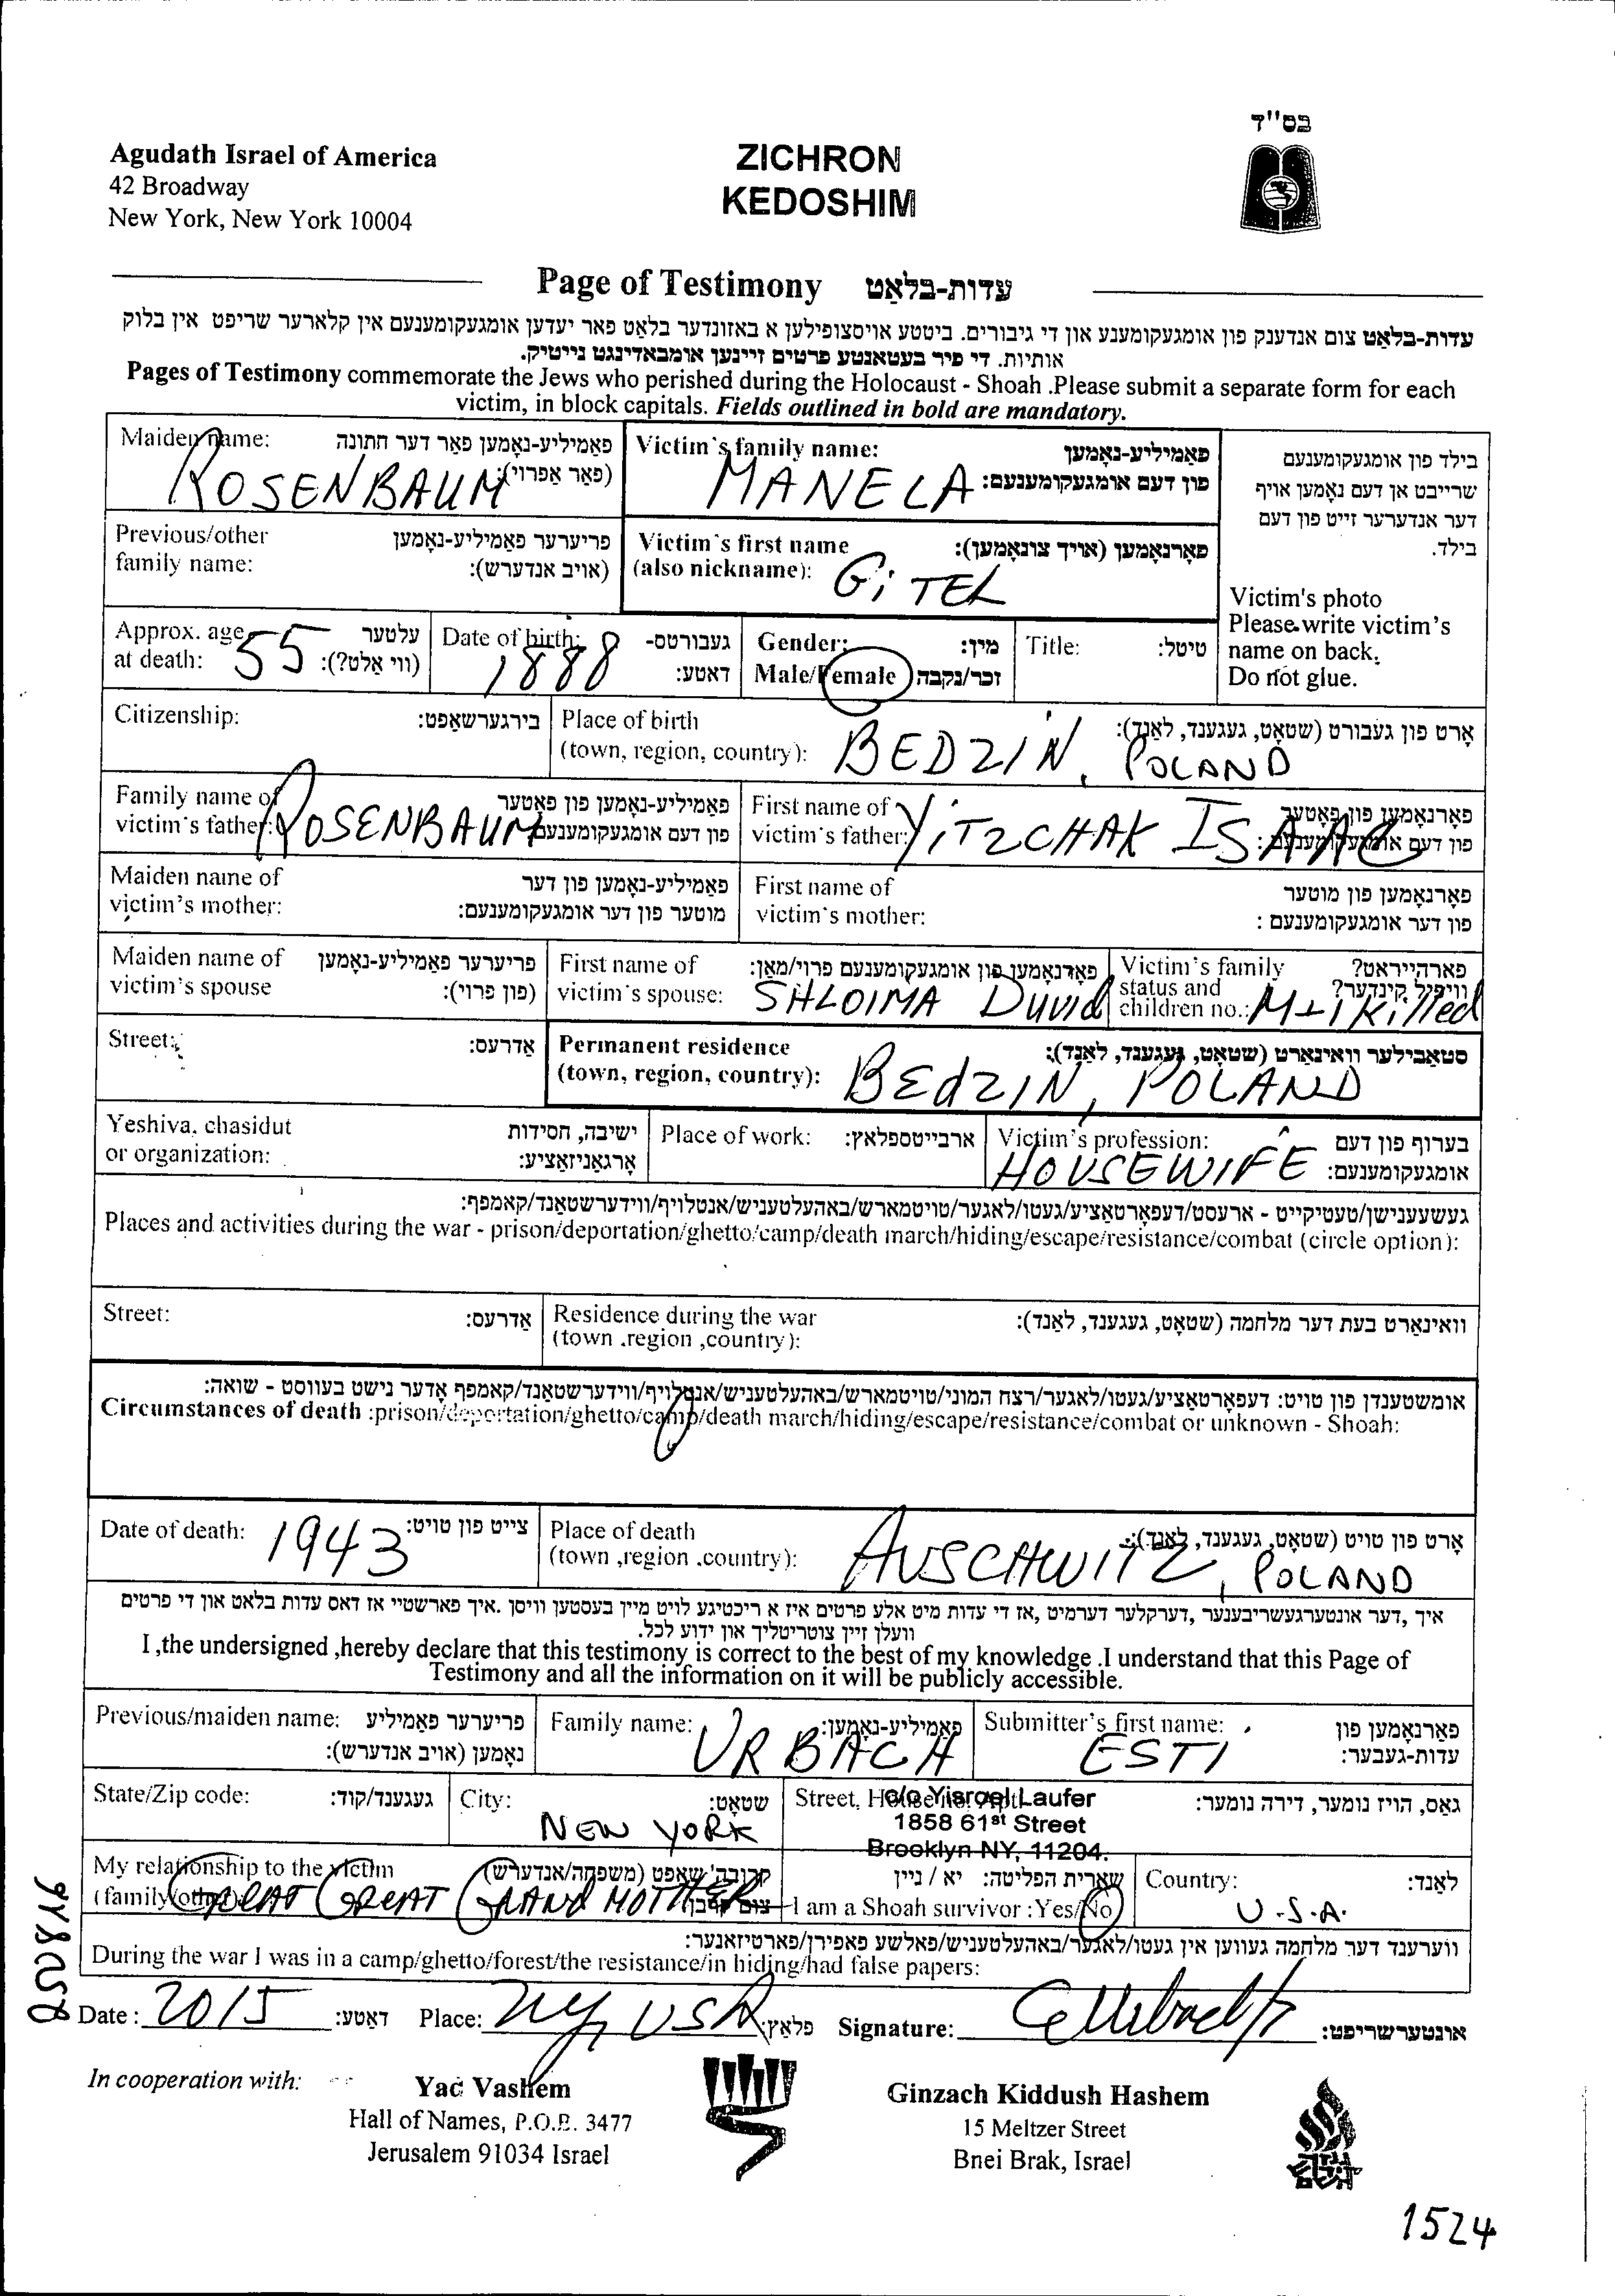 בס"ד
Agudath Israel of America
42 Broadway
New York, New York 10004
ZICHRON
KEDOSHIM
Page of Testimony עדות-בלאַט
עדות-בלאַט צום אנדענק פון אומגעקומענע און די גיבורים. ביטטע אויסצופילען א באזונדער בלאַט פאר יעדען אומגעקומענעם אין קלארער שריפט אין בלוק
אותיות. די פיר בעטאָנטע פרטים זיינען אומבאדינגט נייטיק.
Pages of Testimony commemorate the Jews who perished during the Holocaust - Shoah .Please submit a separate form for each
victim, in block capitals. Fields outlined in bold are mandatory.
Maiden name: פאַמיליע-נאָמען פאַר דער חתונה
(פאַר אַפרוי):
ROSENBAUM
Victim's family name: פאַמיליע-נאָמען
פון דעם אומגעקומענעם:
MANELA
בילד פון אומגעקומענעם
שרייבט אן דעם נאָמען אויף
דער אנדערער זייט פון דעם
בילד.
Previous/other פריערער פאַמיליע-נאָמען
family name: (אויב אנדערש):
Victim's first name פאָרנאָמען (אויך צונאָמען):
(also nickname):
GiTEL
Victim's photo
Please write victim's
name on back.
Do not glue.
Approx. age עלטער
at death: 55 (ווי אַלט?):
Date of birth: געבורטס-
1888 דאַטע:
Gender: מין:
Male/Female זכר/נקבה
Title: טיטל:
Citizenship: בירגערשאַפט:
Place of birth אָרט פון געבורט (שטאָט, געגענד, לאַנד):
(town, region, country): BEDZIN, POLAND
Family name of פאַמיליע-נאָמען פון פאָטער
victim's father: פון דעם אומגעקומענעם
ROSENBAUM
First name of פאָרנאָמען פון פאָטער
victim's father: פון דעם אומגעקומענעם :
YiTZCHAK ISAAC
Maiden name of פאַמיליע-נאָמען פון דער
victim's mother: מוטער פון דער אומגעקומענעם:
First name of פאָרנאָמען פון מוטער
victim's mother: פון דער אומגעקומענעם :
Maiden name of פריערער פאַמיליע-נאָמען
victim's spouse (פון פרוי):
First name of פאָרנאָמען פון אומגעקומענעם פרוי/מאַן:
victim's spouse: SHLOIMA Duvid
Victim's family פארהייראט?
status and וויפיל קינדער?
children no.: M+1 Killed
Street: אַדרעס:
Permanent residence סטאַבילער וואוינאָרט (שטאָט, געגענד, לאַנד):
(town, region, country): BEdZIN, POLAND
Yeshiva, chasidut ישיבה, חסידות
or organization: אָרגאַניזאַציע:
Place of work: ארבייטספלאץ:
Victim's profession: בערוף פון דעם
אומגעקומענעם:
HOUSEWIFE
געשעענישן/טעטיקייט - ארעסט/דעפאָרטאַציע/געטו/לאַגער/טויטמארש/באהעלטעניש/אנטלויף/ווידערשטאַנד/קאמפף:
Places and activities during the war - prison/deportation/ghetto/camp/death march/hiding/escape/resistance/combat (circle option):
Street: אַדרעס:
Residence during the war וואוינאָרט בעת דער מלחמה (שטאָט, געגענד, לאַנד):
(town .region ,country):
אומשטענדן פון טויט: דעפאָרטאַציע/געטו/לאגער/רצח המוני/טויטמארש/באהעלטעניש/אנטלויף/ווידערשטאַנד/קאמפף אָדער נישט בעוווסט - שואה:
Circumstances of death :prison/deportation/ghetto/camp/death march/hiding/escape/resistance/combat or unknown - Shoah:
Date of death: 1943 צייט פון טויט:
Place of death אָרט פון טויט (שטאָט, געגענד, לאַנד):
(town ,region .country): AUSCHWITZ, POLAND
איך ,דער אונטערגעשריבענער ,דערקלער דערמיט ,אז די עדות מיט אלע פרטים איז א ריכטיגע לויט מיין בעסטען וויסן .איך פארשטיי אז דאס עדות בלאט און די פרטים
וועלן זיין צוטריטליך און ידוע לכל.
I ,the undersigned ,hereby declare that this testimony is correct to the best of my knowledge .I understand that this Page of
Testimony and all the information on it will be publicly accessible.
Previous/maiden name: פריערער פאַמיליע
נאָמען (אויב אנדערש):
Family name: פאַמיליע-נאָמען:
URBACH
Submitter's first name: פאָרנאָמען פון
עדות-געבער:
ESTI
State/Zip code: געגענד/קוד:
City: שטאָט:
NEW YORK
Street, גאַס, הויז נומער, דירה נומער:
c/o Yisroel Laufer
1858 61st Street
Brooklyn NY, 11204.
My relationship to the victim קרובה'שאַפט (משפחה/אנדערש)
(family/other): צום קרבן
GREAT GREAT GRAND MOTHER
שארית הפליטה: יא / ניין
I am a Shoah survivor :Yes/No
Country: לאַנד:
U.S.A.
ווערענד דער מלחמה געווען אין געטו/לאַגער/באהעלטעניש/פאלשע פאפירן/פארטיזאנער:
During the war I was in a camp/ghetto/forest/the resistance/in hiding/had false papers:
Date : 2015 דאַטע: Place: NY, USA פלאַץ: Signature: אונטערשריפט:
In cooperation with:
Yad Vashem
Hall of Names, P.O.B. 3477
Jerusalem 91034 Israel
Ginzach Kiddush Hashem
15 Meltzer Street
Bnei Brak, Israel
1524